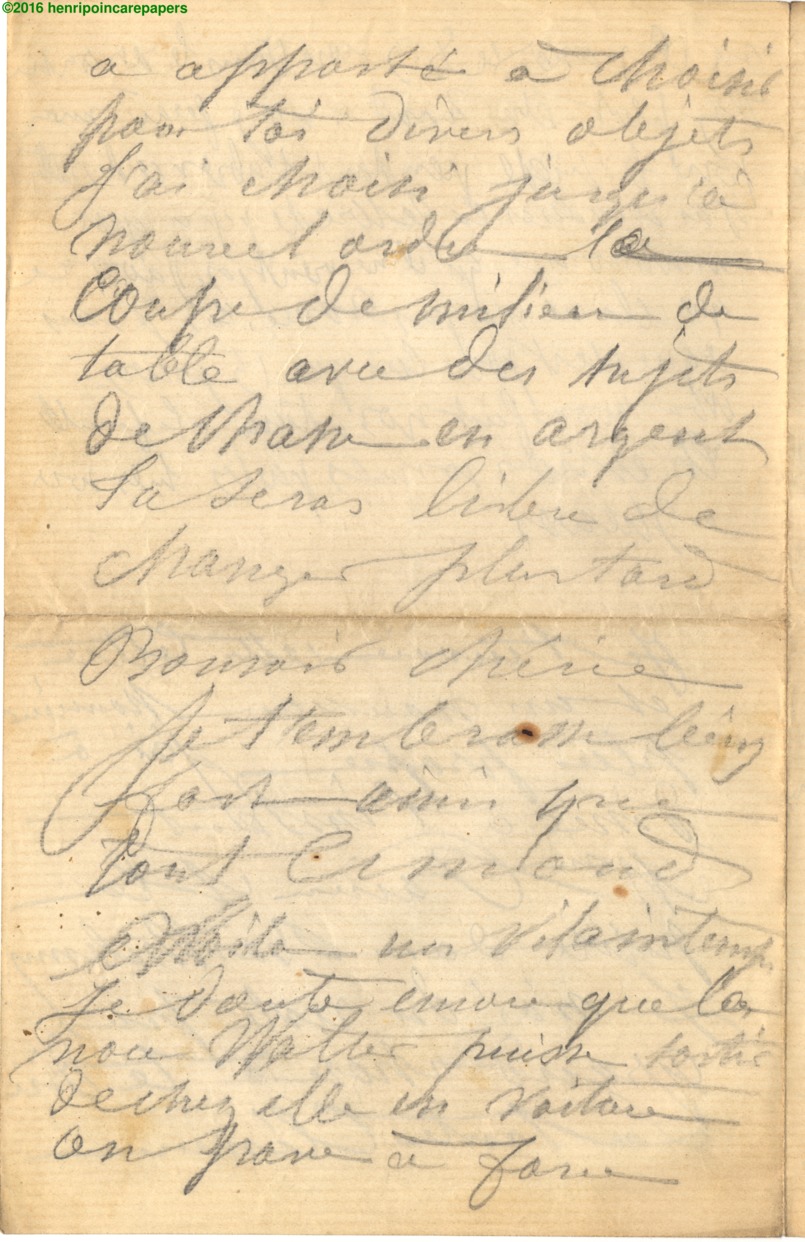 ©2016 henripoincarepapers
a apporté à choisir
pour toi divers objets
J'ai choisi jusqu'à
nouvel ordre la
Coupe de milieu de
table avec des sujets
de chasse en argent
Tu seras libre de
changer plus tard
Bonsoir chérie
Je t'embrasse bien
fort ainsi que
tout le monde
Voila un vilain temps
Je doute encore que la
Walter puisse sortir
de chez elle en voiture
on pave à force